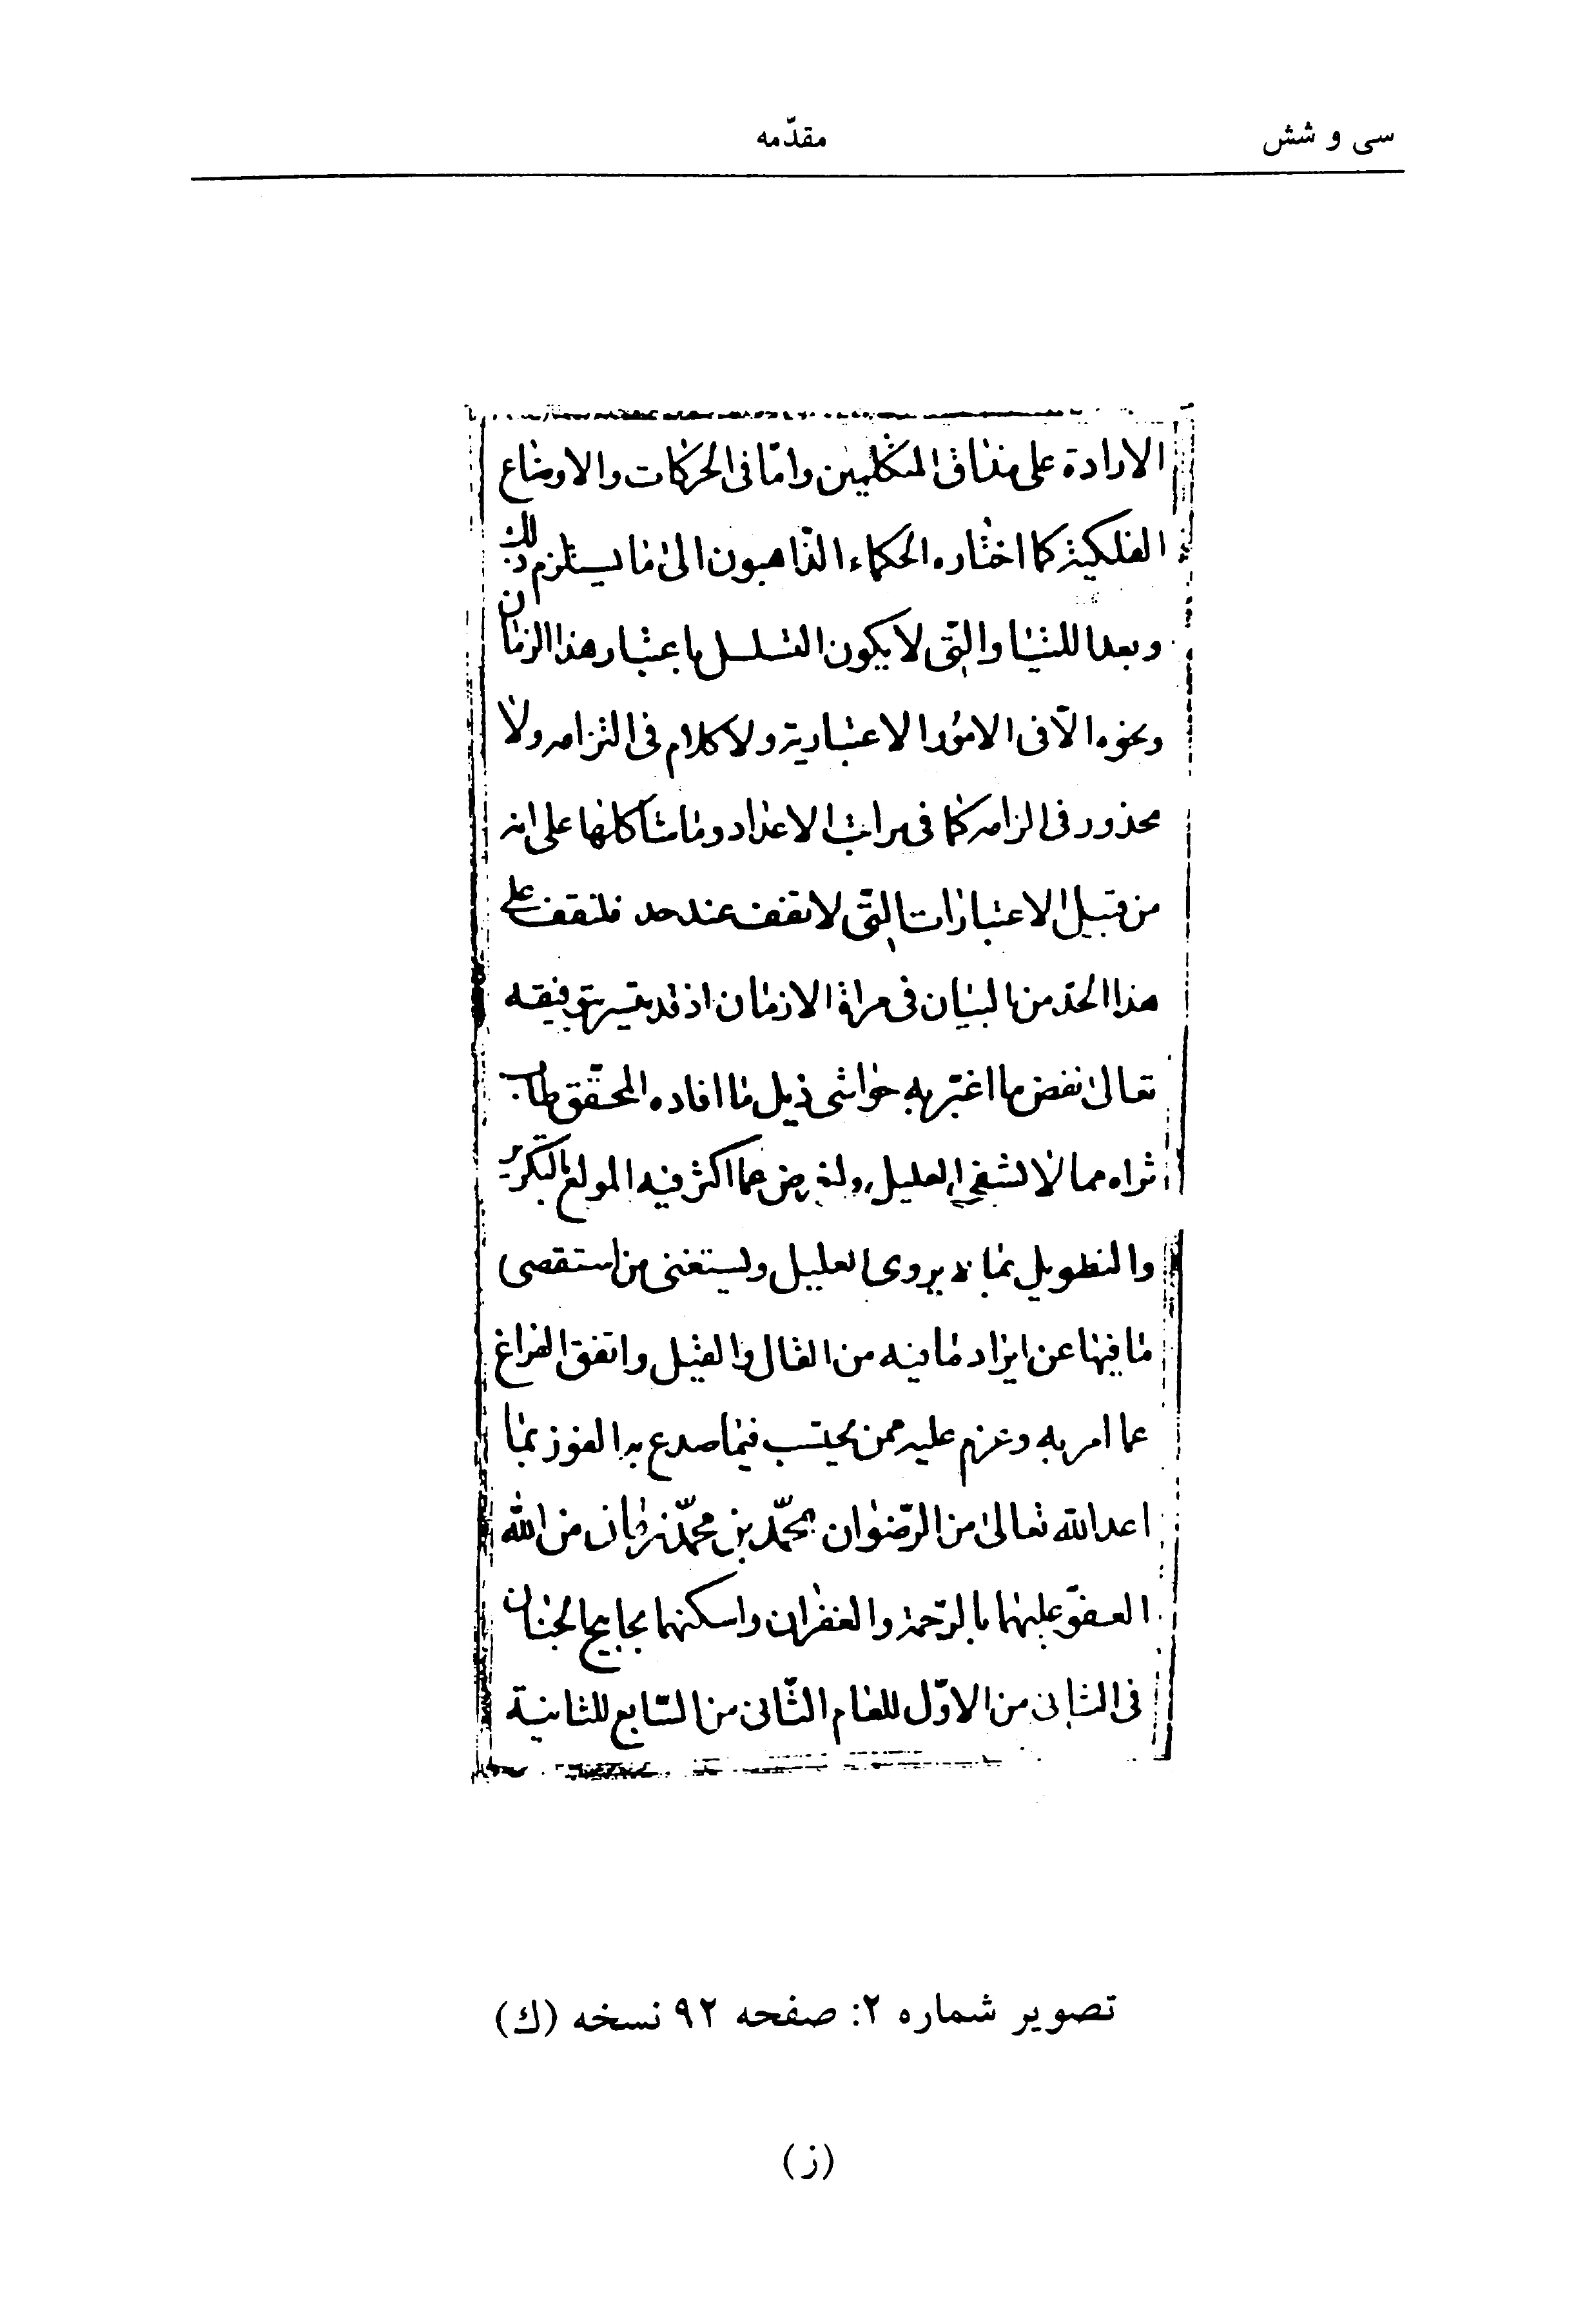 سی و شش
مقدّمه
الارادة على مذاق المتكلمين وامّا فى الحركات والاوضاع
الفلكية كما اختاره الحكماء الذاهبون الى ما يستلزم ذلك
وبعد اللتيا والتى لا يكون التسلسل باعتبار هذا الزمان
ونحوه الّا فى الامور الاعتبارية ولا كلام فى التزامه ولا
محذور فى الزامه كما فى مراتب الاعداد وما شاكلها على انه
من قبيل الاعتبارات التى لا تقف عند حد فلنقف على
هذا الحدّ من البيان فى مرآة الازمان اذ قد يتسر بتوفيقه
تعالى نفض ما اغبّر به حواشى ذيل ما افاده المحقّق طاب
ثراه مما لا يشفى العليل ولنعرض عما اكثر فيه المولع بالتكرير
والتطويل بما لا يروى الغليل وليستغنى من استقصى
ما فيها عن ايراد ما فيه من القال والقيل واتفق الفراغ
عما امر به وعزم عليه ممن يحتسب فيما صدع به الفوز بما
اعد الله تعالى من الرّضوان محمّد بن محمّد زمان من الله
العفوّ عليهما بالرّحمة والغفران واسكنهما بحابيح الجنان
فى الثانى من الاوّل للعام الثّانى من السّابع للثانية
تصویر شماره ۲: صفحه ۹۲ نسخه (ك)
(ز)